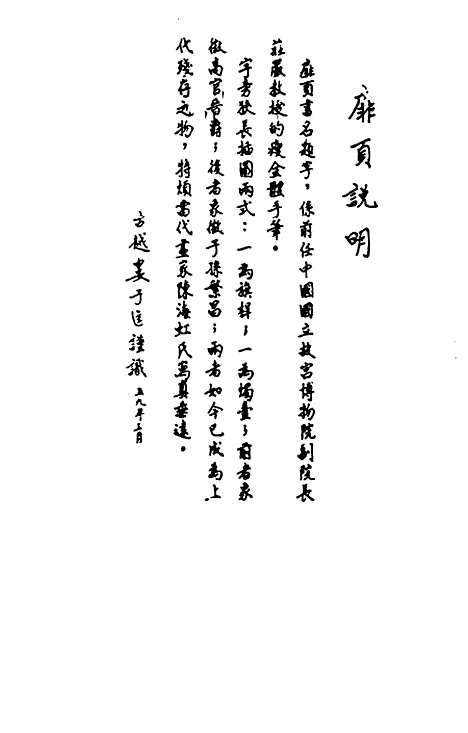 扉頁說明
扉頁書名題字，係前任中國國立故宮博物院副院長
莊嚴教授的瘦金體手筆。
字旁狹長插圖兩式：一為旗桿；一為燭臺；前者象
徵高官爵；後者象徵子孫繁昌；兩者如今已成為上
代殘存之物，特煩當代畫家陳海虹氏寫真垂遠。
方越婁子匡謹識 五九年三月